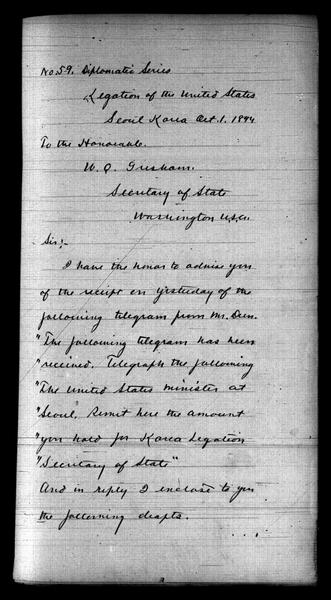 No. 59. Diplomatic Series
Legation of the United States
Seoul Korea Oct. 1. 1894
To the Honorable.
W. Q. Gresham.
Secretary of State
Washington U.S.A.
Sir:-
I have the honor to advise you
of the receipt on yesterday of the
following telegram from Mr. Den.
"The following telegram has been
"received. Telegraph the following
"The United States minister at
"Seoul. Remit here the amount
"you hold for Korea Legation
"Secretary of State"
And in reply I enclose to you
the following drafts.